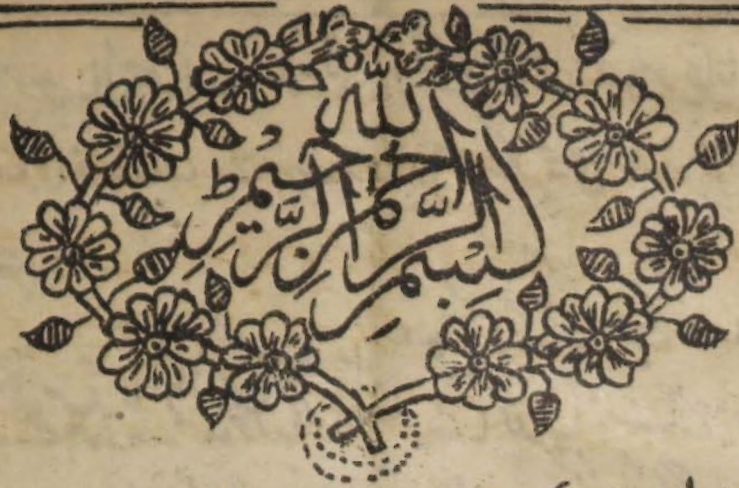 بسم الله الرحمن الرحيم ط